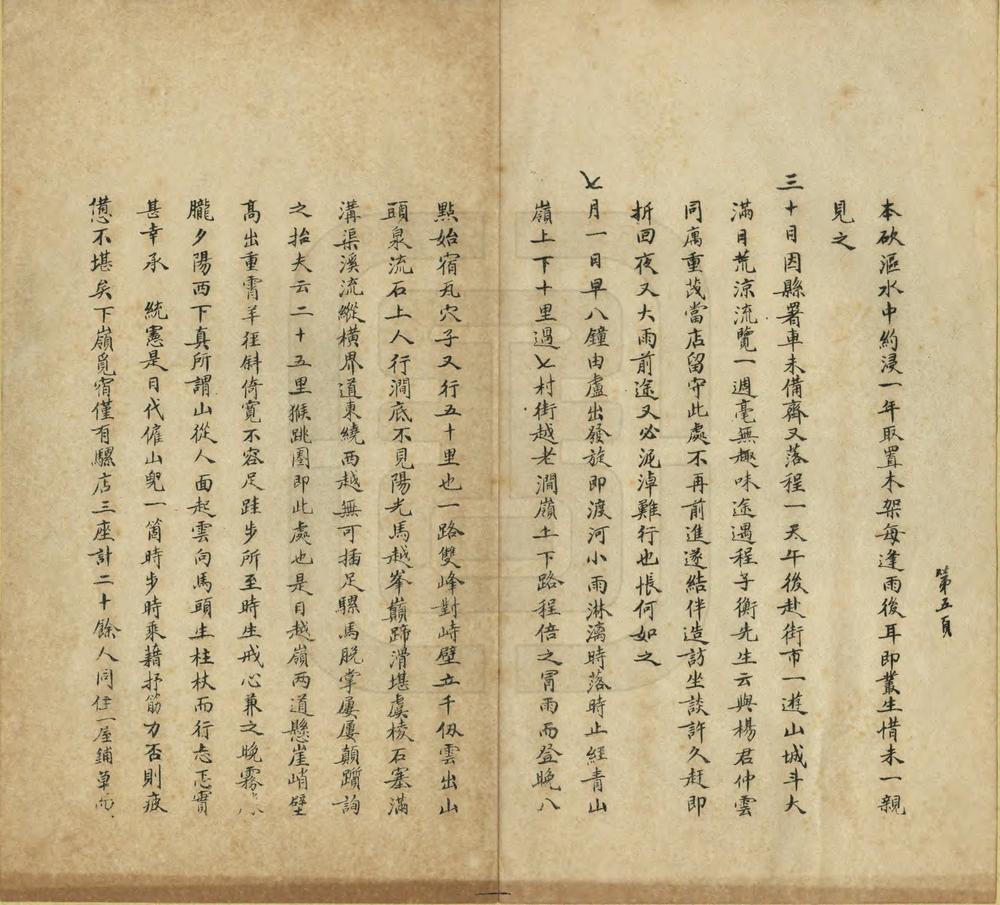 第五頁
本砍漚水中約浸一年取置木架每逢雨後耳即叢生惜未一親
見之
三十日因縣署車未備齊又落程一天午後赴街市一遊山城斗大
滿目荒涼流覽一週毫無趣味途遇程子衡先生云與楊君仲雲
同寓重茂當店留守此處不再前進遂結伴造訪坐談許久赶即
折回夜又大雨前途又必泥淖難行也悵何如之
七月一日早八鐘由盧出發旋即渡河小雨淋漓時落時止經青山
嶺上下十里過七村街越老澗嶺上下路程倍之冒雨而登晚八
點始宿瓦穴子又行五十里也一路雙峰對峙壁立千仭雲出山
頭泉流石上人行澗底不見陽光馬越峯巔蹄滑堪虞棱石塞滿
溝渠溪流縱橫界道東繞西越無可插足騾馬脫掌屢屢顛躓詢
之抬夫云二十五里猴跳圈即此處也是日越嶺两道懸崖峭壁
高出重霄羊徑斜倚寬不容足跬步所至時生戒心兼之晚霧
朧夕陽西下真所謂山從人面起雲向馬頭生柱杖而行忐忑實
甚幸承 統憲是日代僱山兜一箇時步時乘藉抒筋力否則疲
憊不堪矣下嶺覓宿僅有騾店三座計二十餘人同住一屋鋪草而